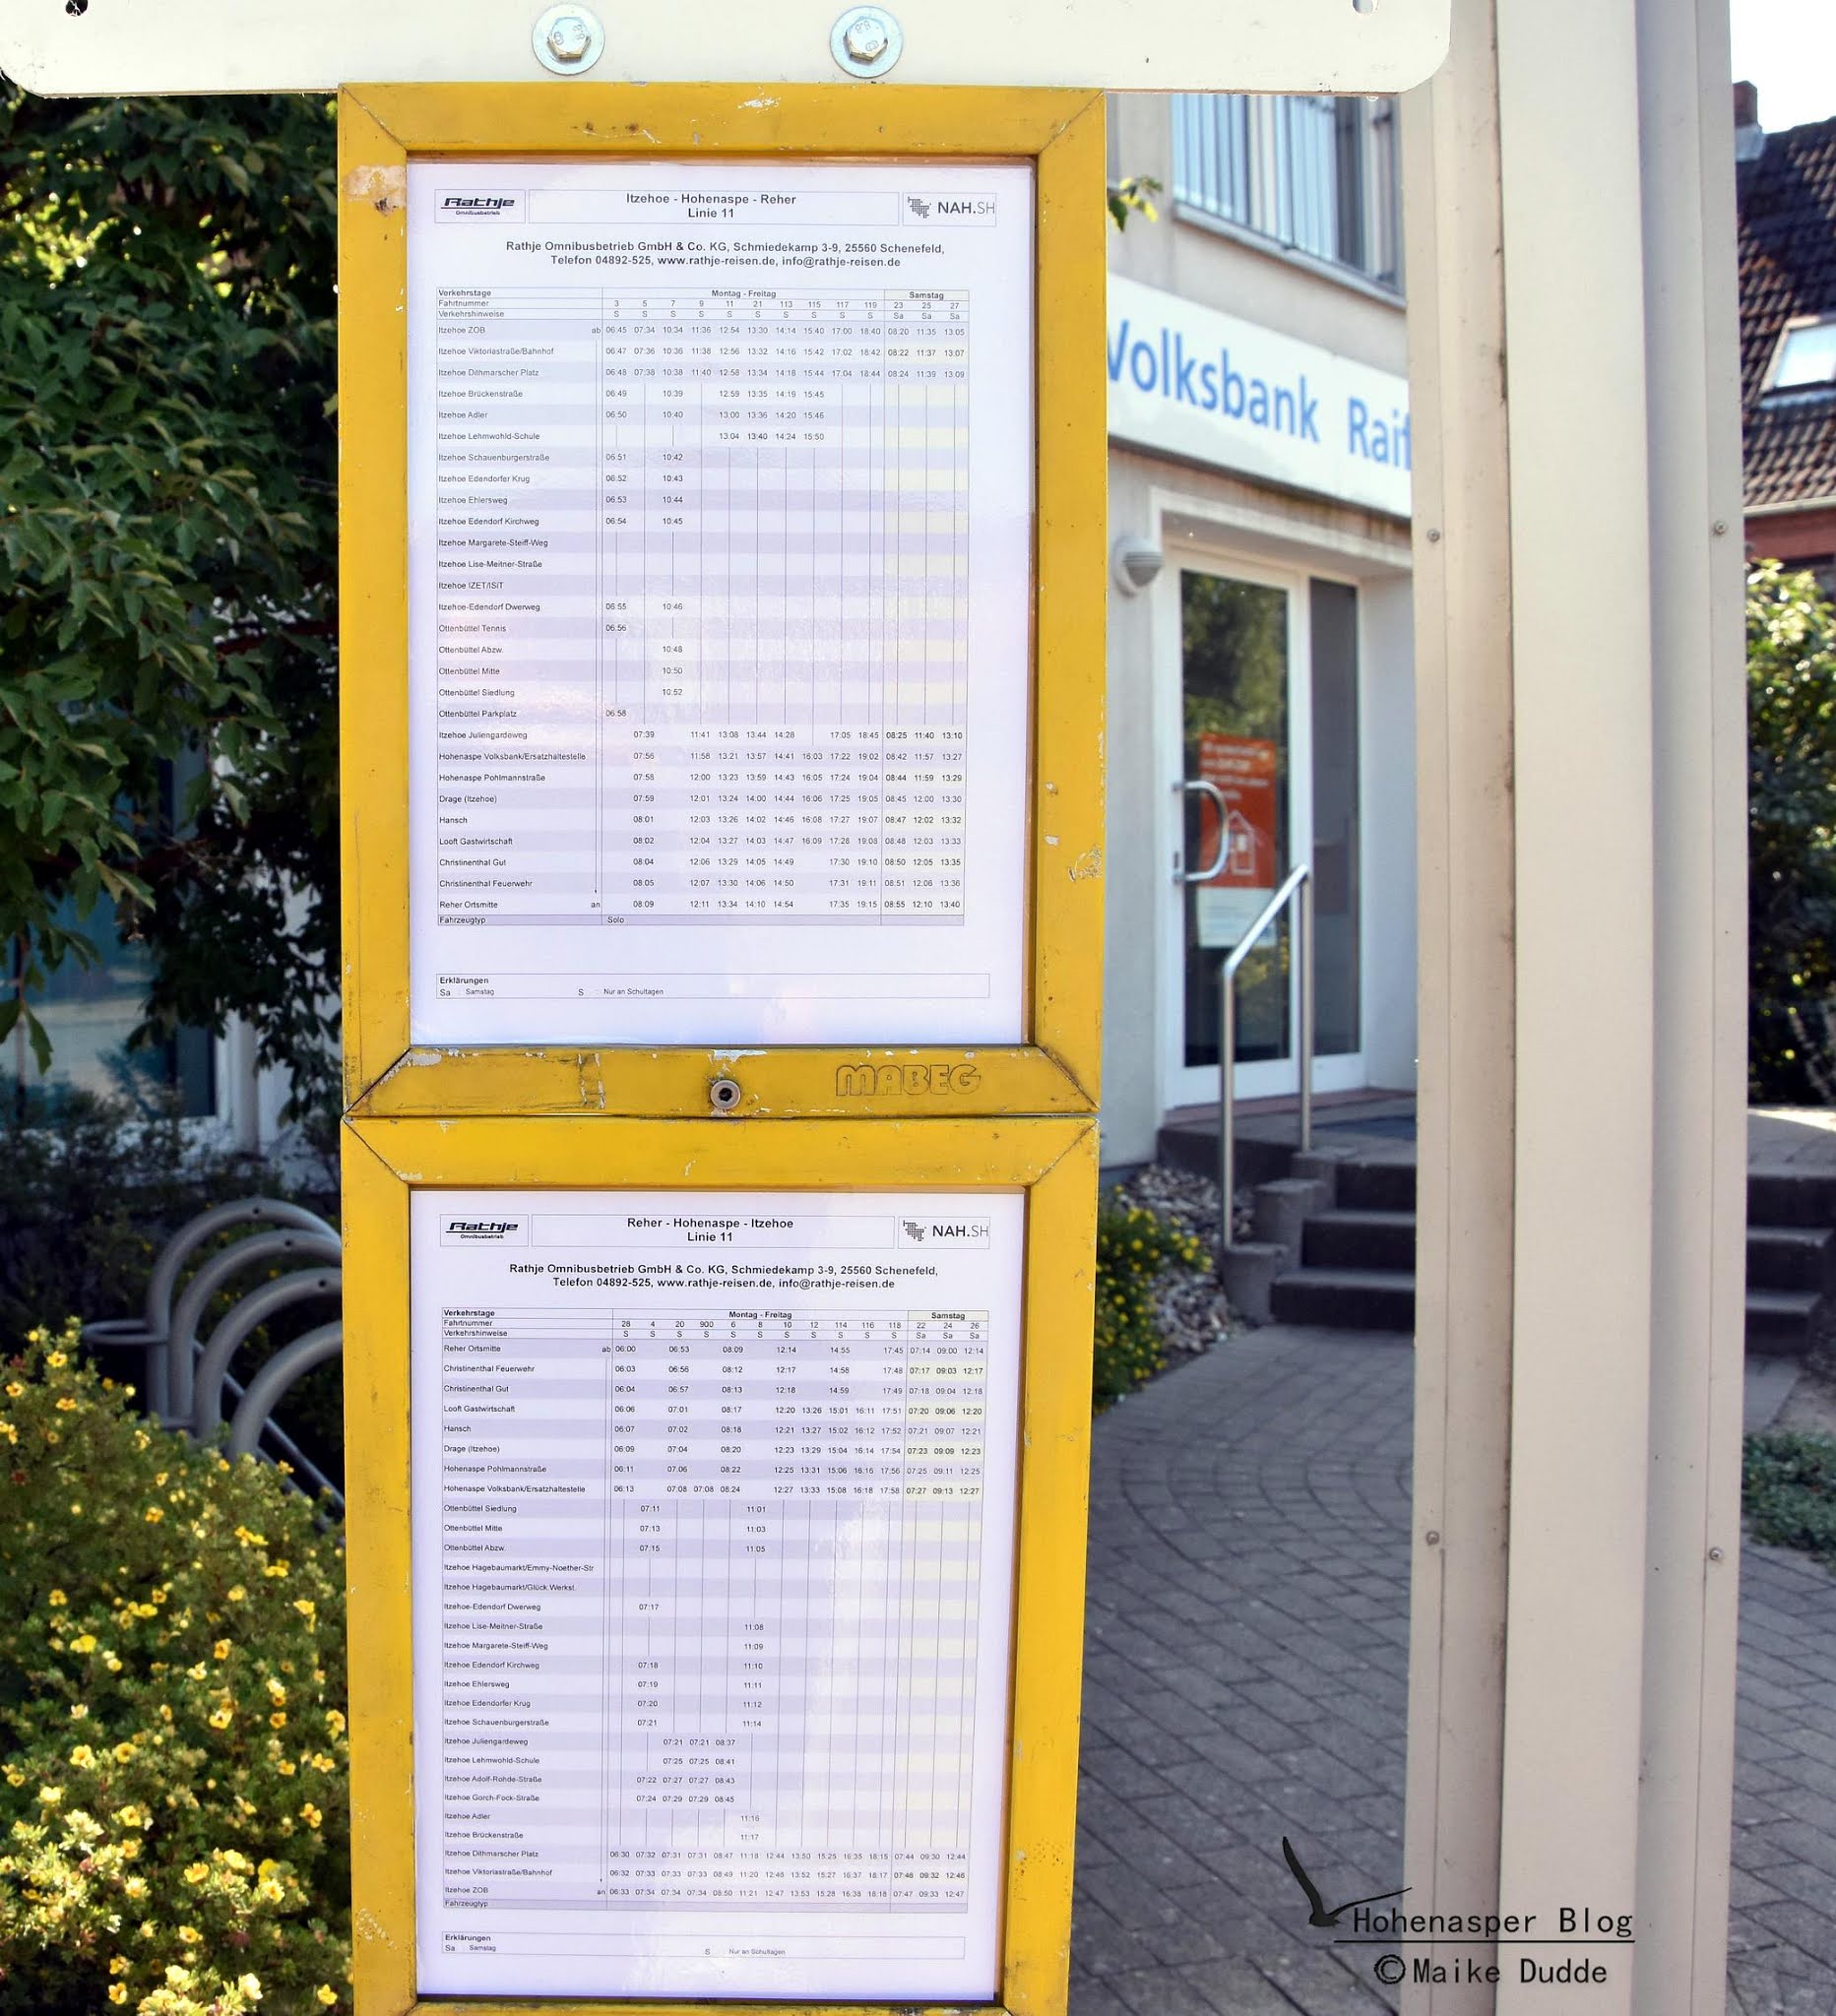 Rathje
Omnibusbetrieb
Itzehoe - Hohenaspe - Reher
Linie 11
NAH.SH
Rathje Omnibusbetrieb GmbH & Co. KG, Schmiedekamp 3-9, 25560 Schenefeld,
Telefon 04892-525, www.rathje-reisen.de, info@rathje-reisen.de
Verkehrstage Montag - Freitag Samstag
Fahrtnummer 3 5 7 9 11 21 113 115 117 119 23 25 27
Verkehrshinweise S S S S S S S S S S Sa Sa Sa
Itzehoe ZOB ab 06:45 07:34 10:34 11:36 12:54 13:30 14:14 15:40 17:00 18:40 08:20 11:35 13:05
Itzehoe Viktoriastraße/Bahnhof 06:47 07:36 10:36 11:38 12:56 13:32 14:16 15:42 17:02 18:42 08:22 11:37 13:07
Itzehoe Dithmarscher Platz 06:48 07:38 10:38 11:40 12:58 13:34 14:18 15:44 17:04 18:44 08:24 11:39 13:09
Itzehoe Brückenstraße 06:49 10:39 12:59 13:35 14:19 15:45
Itzehoe Adler 06:50 10:40 13:00 13:36 14:20 15:46
Itzehoe Lehmwohld-Schule 13:04 13:40 14:24 15:50
Itzehoe Schauenburgerstraße 06:51 10:42
Itzehoe Edendorfer Krug 06:52 10:43
Itzehoe Ehlersweg 06:53 10:44
Itzehoe Edendorf Kirchweg 06:54 10:45
Itzehoe Margarete-Steiff-Weg
Itzehoe Lise-Meitner-Straße
Itzehoe IZET/ISiT
Itzehoe-Edendorf Dwerweg 06:55 10:46
Ottenbüttel Tennis 06:56
Ottenbüttel Abzw. 10:48
Ottenbüttel Mitte 10:50
Ottenbüttel Siedlung 10:52
Ottenbüttel Parkplatz 06:58
Itzehoe Juliengardeweg 07:39 11:41 13:08 13:44 14:28 17:05 18:45 08:25 11:40 13:10
Hohenaspe Volksbank/Ersatzhaltestelle 07:56 11:58 13:21 13:57 14:41 16:03 17:22 19:02 08:42 11:57 13:27
Hohenaspe Pohlmannstraße 07:58 12:00 13:23 13:59 14:43 16:05 17:24 19:04 08:44 11:59 13:29
Drage (Itzehoe) 07:59 12:01 13:24 14:00 14:44 16:06 17:25 19:05 08:45 12:00 13:30
Hansch 08:01 12:03 13:26 14:02 14:46 16:08 17:27 19:07 08:47 12:02 13:32
Looft Gastwirtschaft 08:02 12:04 13:27 14:03 14:47 16:09 17:28 19:08 08:48 12:03 13:33
Christinenthal Gut 08:04 12:06 13:29 14:05 14:49 17:30 19:10 08:50 12:05 13:35
Christinenthal Feuerwehr 08:05 12:07 13:30 14:06 14:50 17:31 19:11 08:51 12:06 13:36
Reher Ortsmitte an 08:09 12:11 13:34 14:10 14:54 17:35 19:15 08:55 12:10 13:40
Fahrzeugtyp Solo
Erklärungen
Sa : Samstag S : Nur an Schultagen
MABEG
Rathje
Omnibusbetrieb
Reher - Hohenaspe - Itzehoe
Linie 11
NAH.SH
Rathje Omnibusbetrieb GmbH & Co. KG, Schmiedekamp 3-9, 25560 Schenefeld,
Telefon 04892-525, www.rathje-reisen.de, info@rathje-reisen.de
Verkehrstage Montag - Freitag Samstag
Fahrtnummer 28 4 20 900 6 8 10 12 114 116 118 22 24 26
Verkehrshinweise S S S S S S S S S S S Sa Sa Sa
Reher Ortsmitte ab 06:00 06:53 08:09 12:14 14:55 17:45 07:14 09:00 12:14
Christinenthal Feuerwehr 06:03 06:56 08:12 12:17 14:58 17:48 07:17 09:03 12:17
Christinenthal Gut 06:04 06:57 08:13 12:18 14:59 17:49 07:18 09:04 12:18
Looft Gastwirtschaft 06:06 07:01 08:17 12:20 13:26 15:01 16:11 17:51 07:20 09:06 12:20
Hansch 06:07 07:02 08:18 12:21 13:27 15:02 16:12 17:52 07:21 09:07 12:21
Drage (Itzehoe) 06:09 07:04 08:20 12:23 13:29 15:04 16:14 17:54 07:23 09:09 12:23
Hohenaspe Pohlmannstraße 06:11 07:06 08:22 12:25 13:31 15:06 16:16 17:56 07:25 09:11 12:25
Hohenaspe Volksbank/Ersatzhaltestelle 06:13 07:08 07:08 08:24 12:27 13:33 15:08 16:18 17:58 07:27 09:13 12:27
Ottenbüttel Siedlung 07:11 11:01
Ottenbüttel Mitte 07:13 11:03
Ottenbüttel Abzw. 07:15 11:05
Itzehoe Hagebaumarkt/Emmy-Noether-Str
Itzehoe Hagebaumarkt/Glück.Werkst.
Itzehoe-Edendorf Dwerweg 07:17
Itzehoe Lise-Meitner-Straße 11:08
Itzehoe Margarete-Steiff-Weg 11:09
Itzehoe Edendorf Kirchweg 07:18 11:10
Itzehoe Ehlersweg 07:19 11:11
Itzehoe Edendorfer Krug 07:20 11:12
Itzehoe Schauenburgerstraße 07:21 11:14
Itzehoe Juliengardeweg 07:21 07:21 08:37
Itzehoe Lehmwohld-Schule 07:25 07:25 08:41
Itzehoe Adolf-Rohde-Straße 07:22 07:27 07:27 08:43
Itzehoe Gorch-Fock-Straße 07:24 07:29 07:29 08:45
Itzehoe Adler 11:16
Itzehoe Brückenstraße 11:17
Itzehoe Dithmarscher Platz 06:30 07:32 07:31 07:31 08:47 11:18 12:44 13:50 15:25 16:35 18:15 07:44 09:30 12:44
Itzehoe Viktoriastraße/Bahnhof 06:32 07:33 07:33 07:33 08:49 11:20 12:46 13:52 15:27 16:37 18:17 07:46 09:32 12:46
Itzehoe ZOB an 06:33 07:34 07:34 07:34 08:50 11:21 12:47 13:53 15:28 16:38 18:18 07:47 09:33 12:47
Fahrzeugtyp
Erklärungen
Sa : Samstag S : Nur an Schultagen
Volksbank Raif
Hohenasper Blog
©Maike Dudde